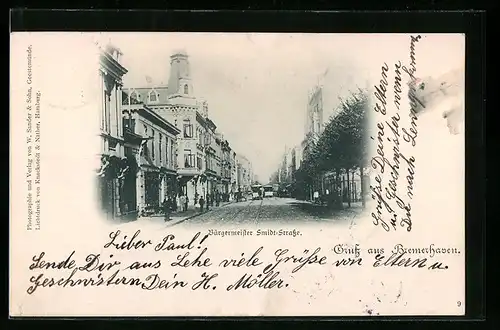 Photographie und Verlag von W. Sander & Sohn, Geestemünde.
Lichtdruck von Knackstedt & Näther, Hamburg.
Bürgermeister Smidt-Straße.
Gruß aus Bremerhaven.
Lieber Paul!
Sende Dir aus Lehe viele Grüsse von Eltern u.
Geschwistern Dein H. Möller.
Grüße Deine Eltern
u. Geschwister wenn
Du nach
9